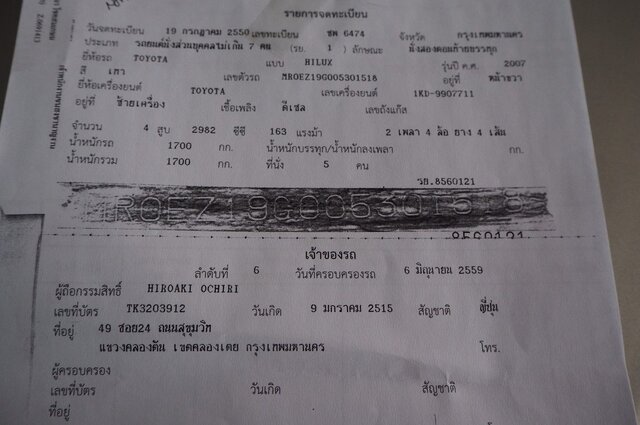 รายการจดทะเบียน
วันจดทะเบียน 19 กรกฎาคม 2550 เลขทะเบียน ชพ 6474 จังหวัด กรุงเทพมหานคร
ประเภท รถยนต์นั่งส่วนบุคคลไม่เกิน 7 คน (รย. 1) ลักษณะ นั่งสองตอนท้ายบรรทุก
ยี่ห้อรถ TOYOTA แบบ HILUX รุ่นปี ค.ศ. 2007
สี เทา เลขตัวรถ MROEZ19G005301518 อยู่ที่ หน้าขวา
ยี่ห้อเครื่องยนต์ TOYOTA เลขเครื่องยนต์ 1KD-9907711
อยู่ที่ ซ้ายเครื่อง เชื้อเพลิง ดีเซล เลขถังแก๊ส
จำนวน 4 สูบ 2982 ซีซี 163 แรงม้า 2 เพลา 4 ล้อ ยาง 4 เส้น
น้ำหนักรถ 1700 กก. น้ำหนักบรรทุก/น้ำหนักลงเพลา กก.
น้ำหนักรวม 1700 กก. ที่นั่ง 5 คน
รย.8560121
ROEZ19G005301518
8560121
เจ้าของรถ
ลำดับที่ 6 วันที่ครอบครองรถ 6 มิถุนายน 2559
ผู้ถือกรรมสิทธิ์ HIROAKI OCHIRI
เลขที่บัตร TK3203912 วันเกิด 9 มกราคม 2515 สัญชาติ ญี่ปุ่น
ที่อยู่ 49 ซอย24 ถนนสุขุมวิท
แขวงคลองตัน เขตคลองเตย กรุงเทพมหานคร โทร.
ผู้ครอบครอง
เลขที่บัตร วันเกิด สัญชาติ
ที่อยู่